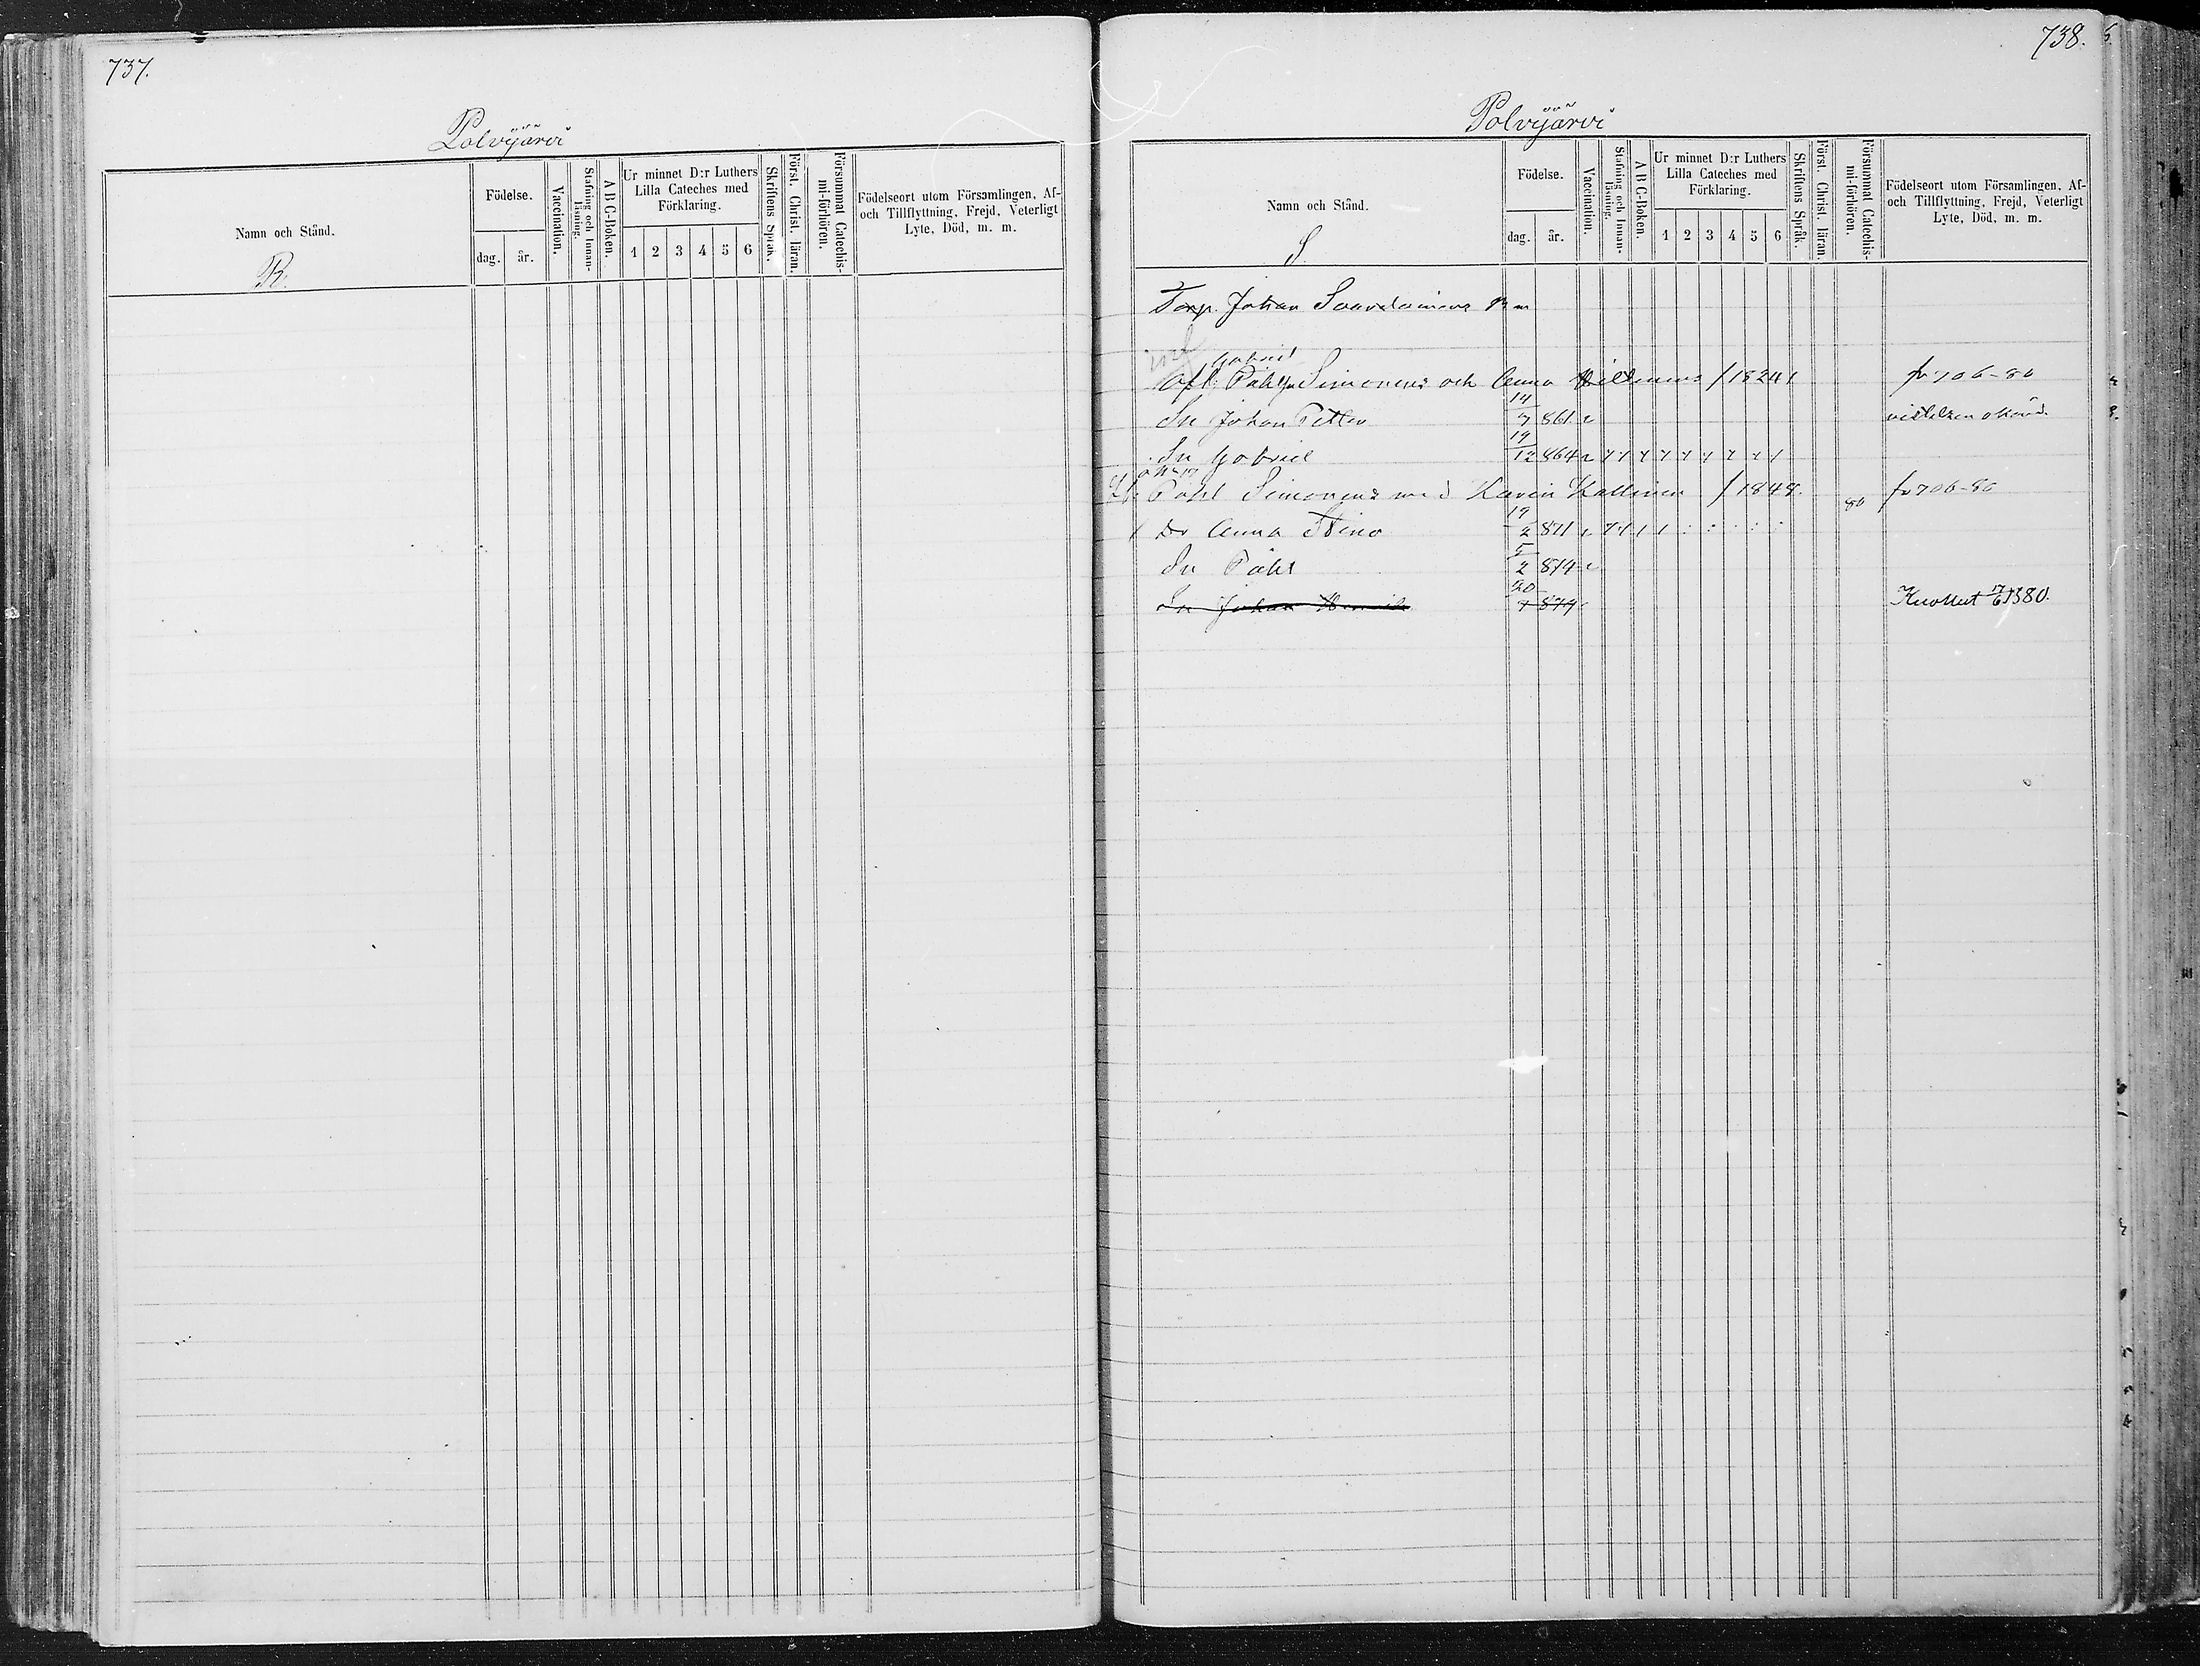 737.
Polvijärvi
Namn och Stånd.
R.
Födelse.
dag. år.
Vaccination.
Stafning och Innan-läsning.
A B C-Boken.
Ur minnet D:r Luthers
Lilla Cateches med
Förklaring.
1 2 3 4 5 6
Skriftens Språk.
Först. Christ. läran.
Försummat Catechis-mi-förhören.
Födelseort utom Församlingen, Af-
och Tillflyttning, Frejd, Veterligt
Lyte, Död, m. m.
738.
Polvijärvi
Namn och Stånd.
S.
Födelse.
dag. år.
Vaccination.
Stafning och Innan-läsning.
A B C-Boken.
Ur minnet D:r Luthers
Lilla Cateches med
Förklaring.
1 2 3 4 5 6
Skriftens Språk.
Först. Christ. läran.
Försummat Catechis-mi-förhören.
Födelseort utom Församlingen, Af-
och Tillflyttning, Frejd, Veterligt
Lyte, Död, m. m.
Torp. Johan
Gabriel
Påhl Simonens och Anna /1824/ fr 706-80
Sn Johan Petter 14/7 861
Sn Gabriel 19/12 864
Påhl Simonens med Karin /1848. 80 fr 706-80
Dr Anna Stina 19/2 871
Sn Påhl 5/2 874
Sn Johan Henrik 20 879 1880.